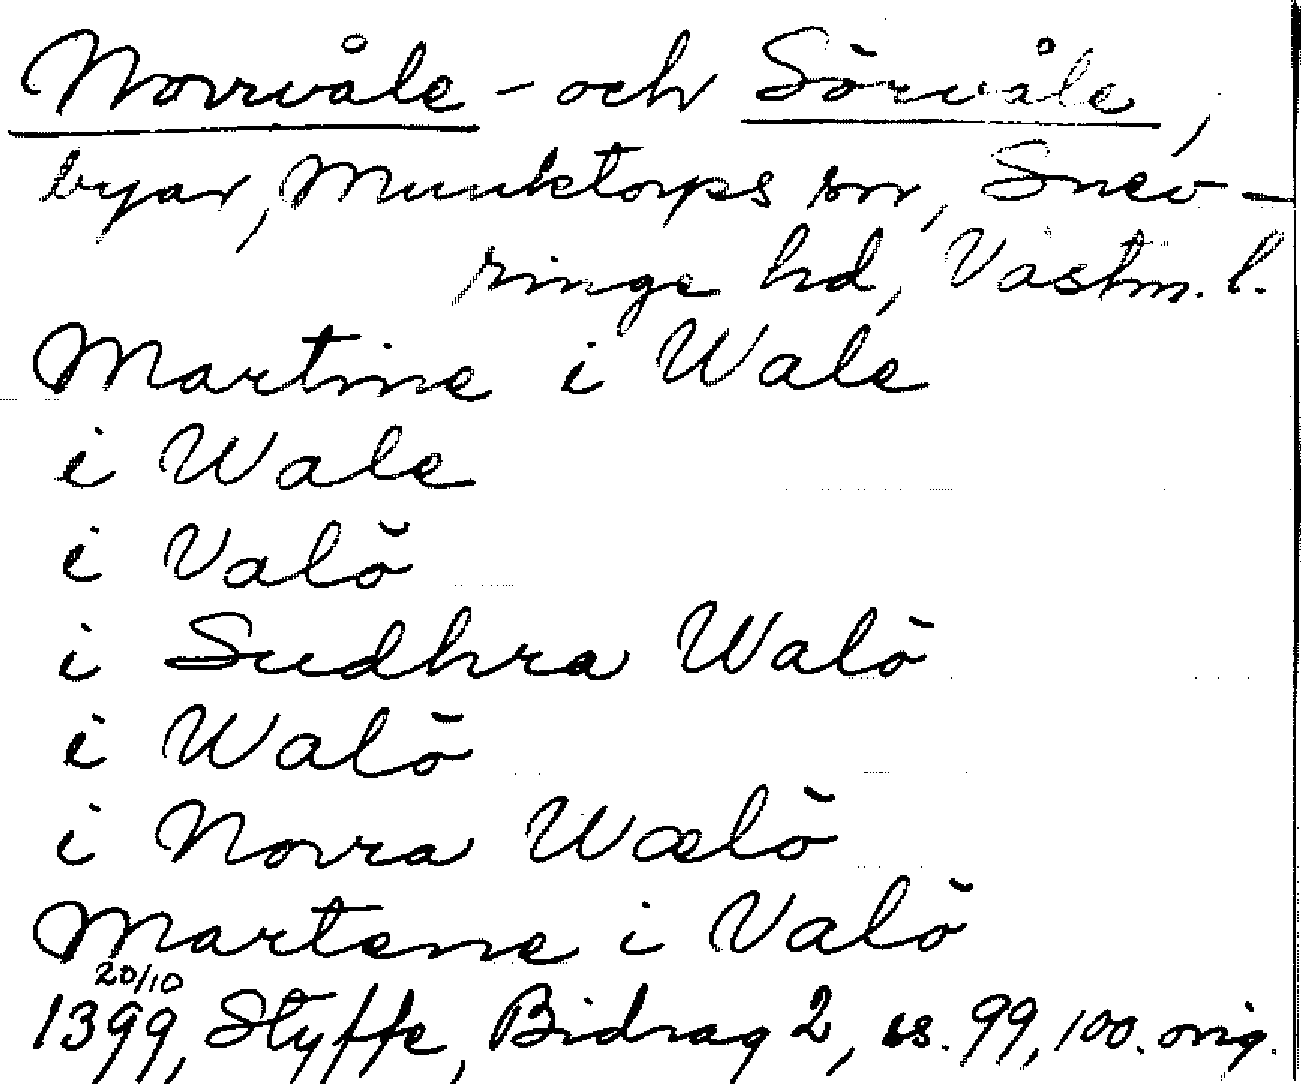 Norrvåle - och Sörvåle,
byar, Munktorps sn, Snev-
ringe hd, Västm. l.
Martine i Wale
i Wale
i Valö
i Sudhra Walö
i Walö
i Norra Wælö
Martene i Valö
20/10
1399, Styffe, Bidrag 2, ss. 99, 100. orig.